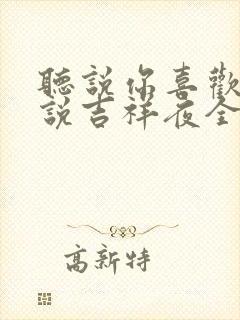 聽說你喜歡
說吉祥夜全
高新特